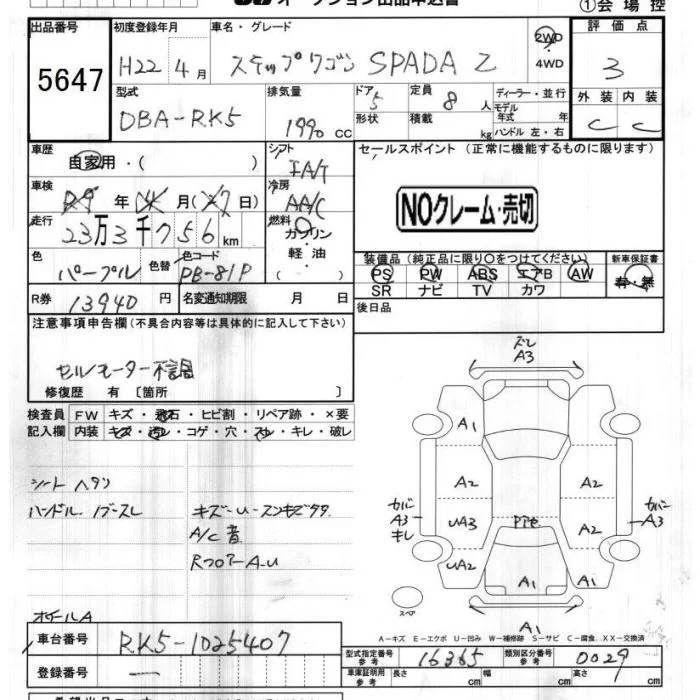 オークション出品申込書
①会場控
出品番号 初度登録年月 車名・グレード 評価点
5647 H22年4月 ステップワゴン SPADA Z 2WD・4WD 3
型式 排気量 ドア 定員 ディーラー・並行 外装 内装
DBA-RK5 1990 cc 5 8人 モデル年式 年 C C
形状 積載 kg ハンドル 左・右
車歴 シフト セールスポイント (正常に機能するものに限ります)
自家用・( ) IA/T
車検 年 月( 日) 冷房
AA/C NOクレーム・売切
走行 燃料
23万3千756km ガソリン・軽油・( )
色 色替 色コード 装備品(純正品に限り○をつけてください) 新車保証書
パープル PB-81P PS PW ABS エアB AW 有・無
SR ナビ TV カワ
R券 13940円 名変通知期限 月 日 後日品
注意事項申告欄(不具合内容等は具体的に記入して下さい)
セルモーター不調
修復歴 有 〔箇所 〕
検査員 FW キズ・飛石・ヒビ割・リペア跡・×要
記入欄 内装 キズ・汚レ・コゲ・穴・スレ・キレ・破レ
シートヘタリ
ハンドル.ノブスレ
A/C 音
RフロアーA-U
ホイールA
ズレ
A3
A1
A2 A2
カバー
A3
キレ
UA3
A2
カバー
A3
UA2
A1
A1
スペア
A1
A-キズ E-エクボ U-凹み W-補修跡 S-サビ C-腐食 XX-交換済
車台番号 RK5-1025407
型式指定番号 参考 16365 類別区分番号 参考 0029
登録番号 —
車庫証明用 参考 長さ cm 幅 cm 高さ cm